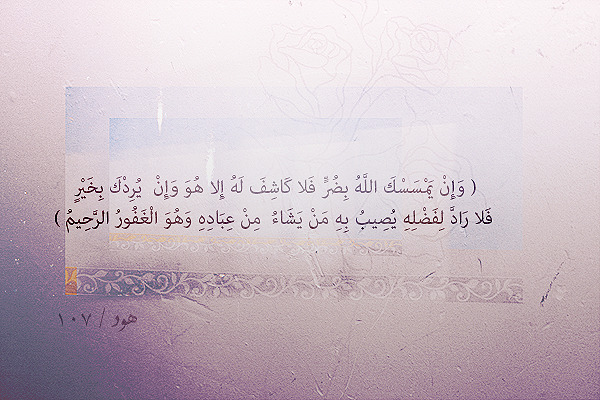 ( وَإِنْ يَمْسَسْكَ اللَّهُ بِضُرٍّ فَلا كَاشِفَ لَهُ إِلا هُوَ وَإِنْ يُرِدْكَ بِخَيْرٍ
فَلا رَادَّ لِفَضْلِهِ يُصِيبُ بِهِ مَنْ يَشَاءُ مِنْ عِبَادِهِ وَهُوَ الْغَفُورُ الرَّحِيمُ )
هود / ١٠٧